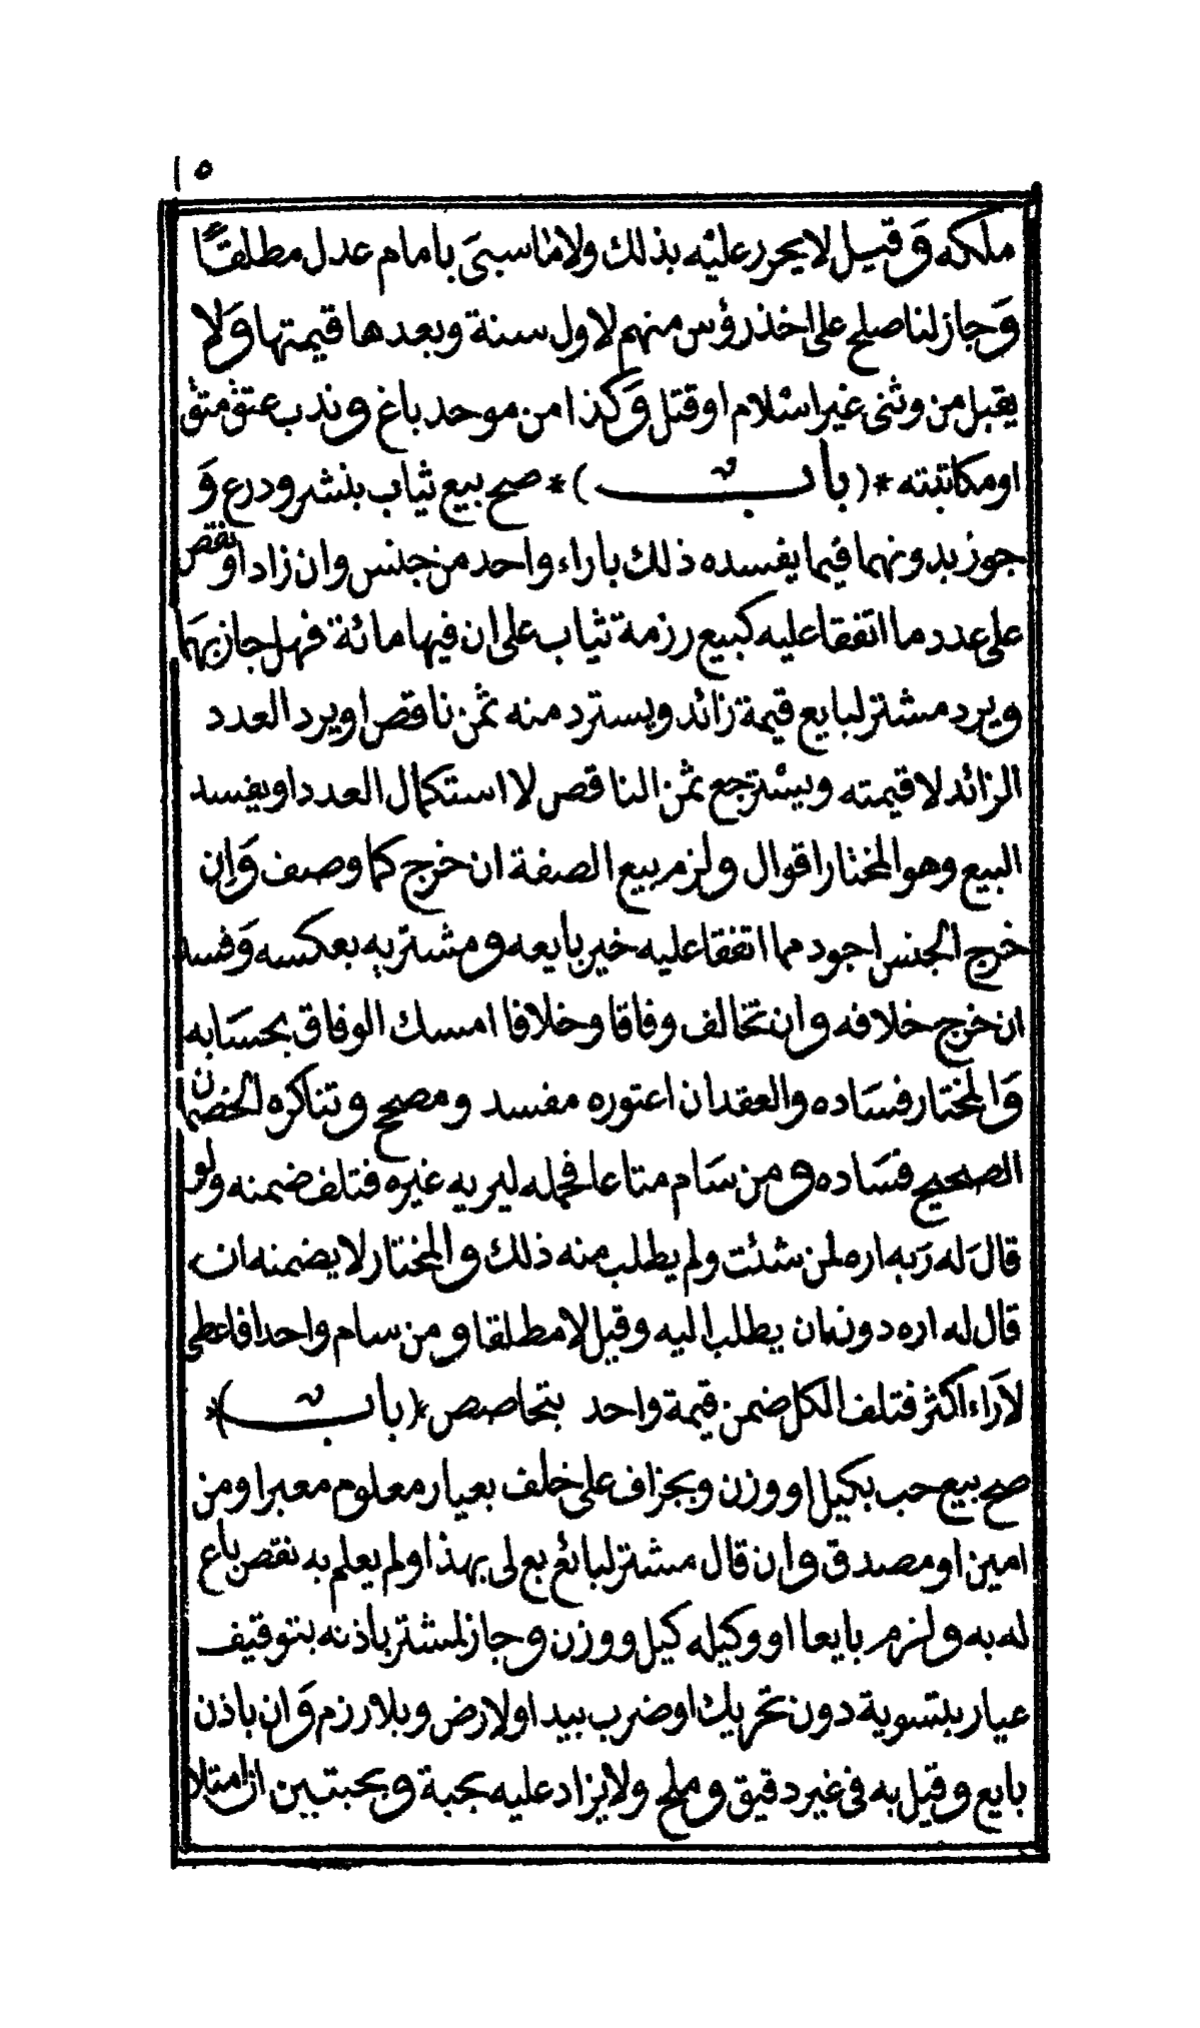 ١٥
ملكه وَقيل لا يحرر عليْه بذلك ولا ما سبىَ بامام عدل مطلقًا
وَجاز لنا صلح على اخذ رؤس منهم لاول سنة وبعدها قيمتها وَلا
يقبل من وثنى غير اسْلام او قتل وَكذا من موحد باغ وندب عتق متق
او مكاتبته *( باب )* صح بيع ثياب بنشر وذرع وَ
جوز بدونهما فيما يفسده ذلك باراء واحد من جنس وان زاد او نقص
على عدد ما اتفقا عليه كبيع رزمة ثياب على ان فيها مائة فهل جاز بهَا
ويرد مشتر لبايع قيمة زائد ويسترد منه ثمن ناقص او يرد العدد
الزائد لا قيمته ويسْترجع ثمن الناقص لا استكمال العدد او يفسد
البيع وهو المختار اقوال ولزم بيع الصفة ان خرج كما وصف وَإن
خرج الجنس اجود مما اتفقا عليه خير بايعه ومشتريه بعكسه وَفسد
ان خرج خلافه وان تخالف وفاقا وخلافا امسك الوفاق بحسَابه
وَالمختار فسَاده والعقد ان اعتوره مفسد ومصحح وتناكره الخصمان
الصحيح فسَاده ومن سَام متاعا فحمله ليريه غيره فتلف ضمنه ولو
قالَ له رَبه اره لمن شئت ولم يطلب منه ذلك والمختار لا يضمنه ان
قال له اره دون ان يطلب اليه وقيل لا مطلقا ومن سام واحدا فاعطى
لاَراء اكثر فتلف الكل ضمن قيمة واحد بتحاصص *( باب )*
صح بيع حب بكيل او وزن وبجزاف على خلف بعيار معلوم معبرا ومن
امين او مصدق وان قال مشتر لبائع بع لى بهذا ولم يعلم به نقص باع
له به ولزم بايعا او وكيله كيل ووزن وجاز لمشتر باذنه بتوقيف
عيار بتسوية دون تحريك او ضرب بيد او لارض وبلا رزم وَان باذن
بايع وقيل به فى غير دقيق وملح ولا يزاد عليه بحبة وبحبتين ان امتلا